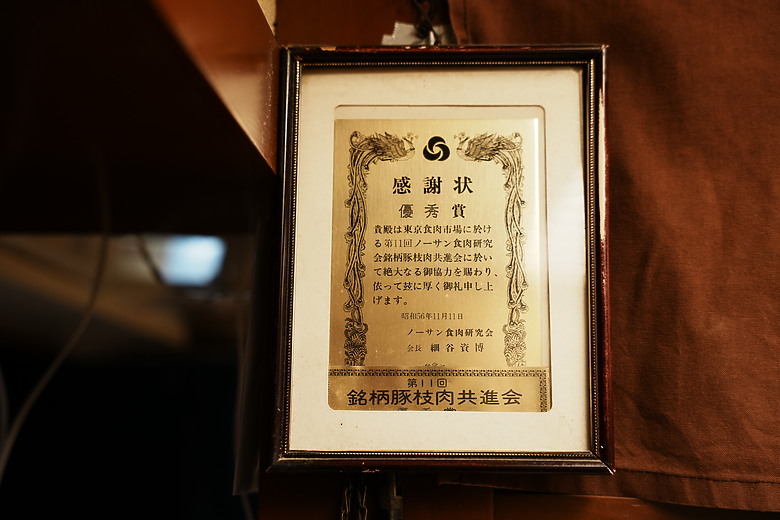 感謝状
優秀賞
貴殿は東京食肉市場に於け
る第11回ノーサン食肉研究
会銘柄豚枝肉共進会に於い
て絶大なる御協力を賜わり、
依って玆に厚く御礼申し上
げます。
昭和56年11月11日
ノーサン食肉研究会
会長 細谷資博
第11回
銘柄豚枝肉共進会